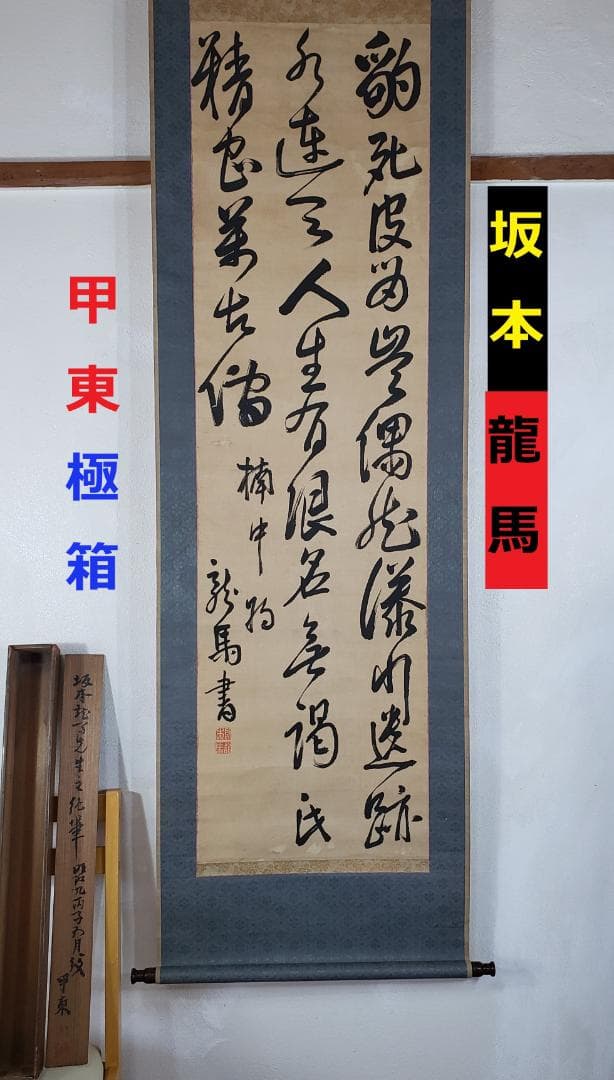 坂本
龍馬
甲東
極箱
豹死皮留豈偶然湊川遺跡
水連天人生有限名無竭氏
精忠萬古傳
楠中
龍馬書
坂本龍馬先生之絶筆
丙子五月
甲東